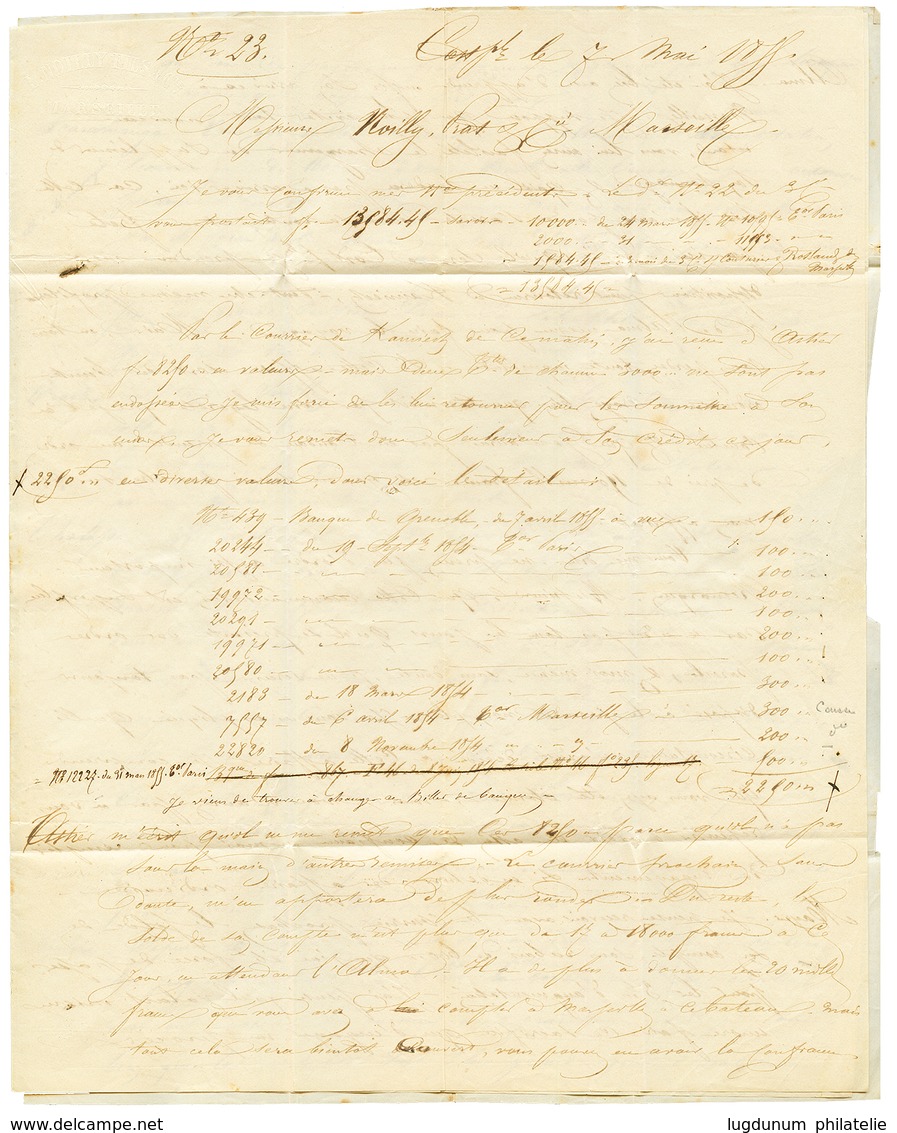 No 23.
Consple le 7 Mai 1855.
Messieurs Noilly, Prat & Cie Marseille.
Je vous confirme mes précédents. Le Dr No 22 du 3 Ct
vous portait 13584.45 - savoir - 10000 - de 24 mars 1855 No Tor Paris
2000 - 31 - - -
1584.45 - Rostand Marseille
13584.45
Par le Courrier de Kamiesch de Ce matin, j'ai reçu d'Astier
f. 8250 en valeurs - mais Deux de chacune 3000 ne sont pas
endossées - Je suis forcé de les lui retourner pour les soumettre à Son
endos. - Je vous remets donc Seulement à Son Crédit, ce jour,
2250 en diverses valeurs, dont voici le détail :
No 439 - Banque de Grenoble, du 7 avril 1855 à vue - 150
20244 - du 19 - Septbre 1854 - Tor Paris - 100
20581 - - - 100
19972 - - - 200
20291 - - - 100
19971 - - - 200
20580 - - - 100
2183 - du 18 Mars 1854 - 300
7557 - du 6 avril 1854 - Tor Marseille - 300
22820 - du 8 Novembre 1854 - 200
No 12227 du 31 mars 1855 Tor Paris 500
2250
Je viens de trouver à changer Billet de banque -
Astier m'écrit qu'il ne me remet que Ces 8250 parce qu'il n'a pas
sous la main d'autres remises. Le courrier prochain, sans
doute, m'en apportera de plus rondes. Du reste, le
Solde de son Compte n'est plus que de 18000 francs à Ce
Jour, en attendant l'Alma - Il a de plus à donner les 20 mille
francs que vous avez à lui compter à Marseille à ce bateau, mais
tout cela sera bientôt Couvert, vous pouvez en avoir la Confiance
lugdunum philatelie
www.delcampe.net